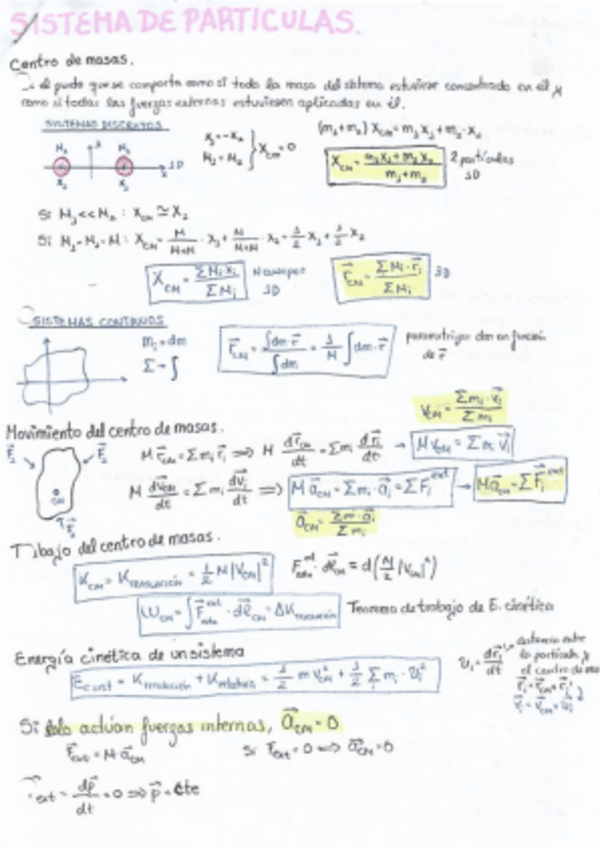 SISTEMA DE PARTICULAS.
Centro de masas.
→ el punto que se comporta como si toda la masa del sistema estuviese concentrada en él y
como si todas las fuerzas externas estuviesen aplicadas en él.
SISTEMAS DISCRETOS
x₁ = -x₂
M₁ = M₂ } X_CM = 0
(m₁+m₂) X_CM = m₁x₁ + m₂·x₂
M₁ M₂ 1D
x₁ x₂
X_CM = (m₁x₁ + m₂x₂)/(m₁+m₂) 2 partículas
1D
Si M₁ << M₂ : X_CM ≃ X₂
Si M₁ = M₂ = M : X_CM = M/(M+M) · x₁ + M/(M+M) · x₂ = 1/2 x₁ + 1/2 x₂
X_CM = ΣMᵢxᵢ/ΣMᵢ N cuerpos 1D
r⃗_CM = ΣMᵢ·r⃗ᵢ/ΣMᵢ 3D
SISTEMAS CONTINUOS
mᵢ = dm
Σ → ∫
r⃗_CM = ∫dm·r⃗/∫dm = 1/M ∫dm·r⃗
parametrizar dm en función
de r⃗
v⃗_CM = Σmᵢ·v⃗ᵢ/Σmᵢ
Movimiento del centro de masas.
M r⃗_CM = Σmᵢ r⃗ᵢ ⟹ M dr⃗_CM/dt = Σmᵢ dr⃗ᵢ/dt → M v⃗_CM = Σmᵢ v⃗ᵢ
F⃗₁ F⃗₂ CM F⃗₃
M dv⃗_CM/dt = Σmᵢ dv⃗ᵢ/dt ⟹ M a⃗_CM = Σmᵢ·a⃗ᵢ = ΣF⃗ᵢ^ext → M a⃗_CM = ΣF⃗ᵢ^ext
a⃗_CM = Σmᵢ·a⃗ᵢ/Σmᵢ
Tibajo del centro de masas.
K_CM = K_TRASLACIÓN = 1/2 M|v_CM|²
F⃗_neta^ext · dl⃗_CM = d(M/2 |v_CM|²)
W_CM = ∫F⃗_neta^ext · dl⃗_CM = ΔK_TRASLACIÓN Teorema de trabajo de E. cinética
Energía cinética de un sistema
E_cinet = K_traslación + K_relativa = 1/2 m v_CM² + 1/2 Σ mᵢ·uᵢ²
uᵢ = dr⃗ᵢ'/dt → distancia entre
la partícula y
el centro de ma
r⃗ᵢ = r⃗_CM + r⃗ᵢ'
v⃗ᵢ = v⃗_CM + u⃗ᵢ
Si solo actúan fuerzas internas, a⃗_CM = 0
F⃗_ext = M·a⃗_CM Si F⃗_ext = 0 ⟹ a⃗_CM = 0
_ext = dp⃗/dt = 0 ⟹ p⃗ = cte